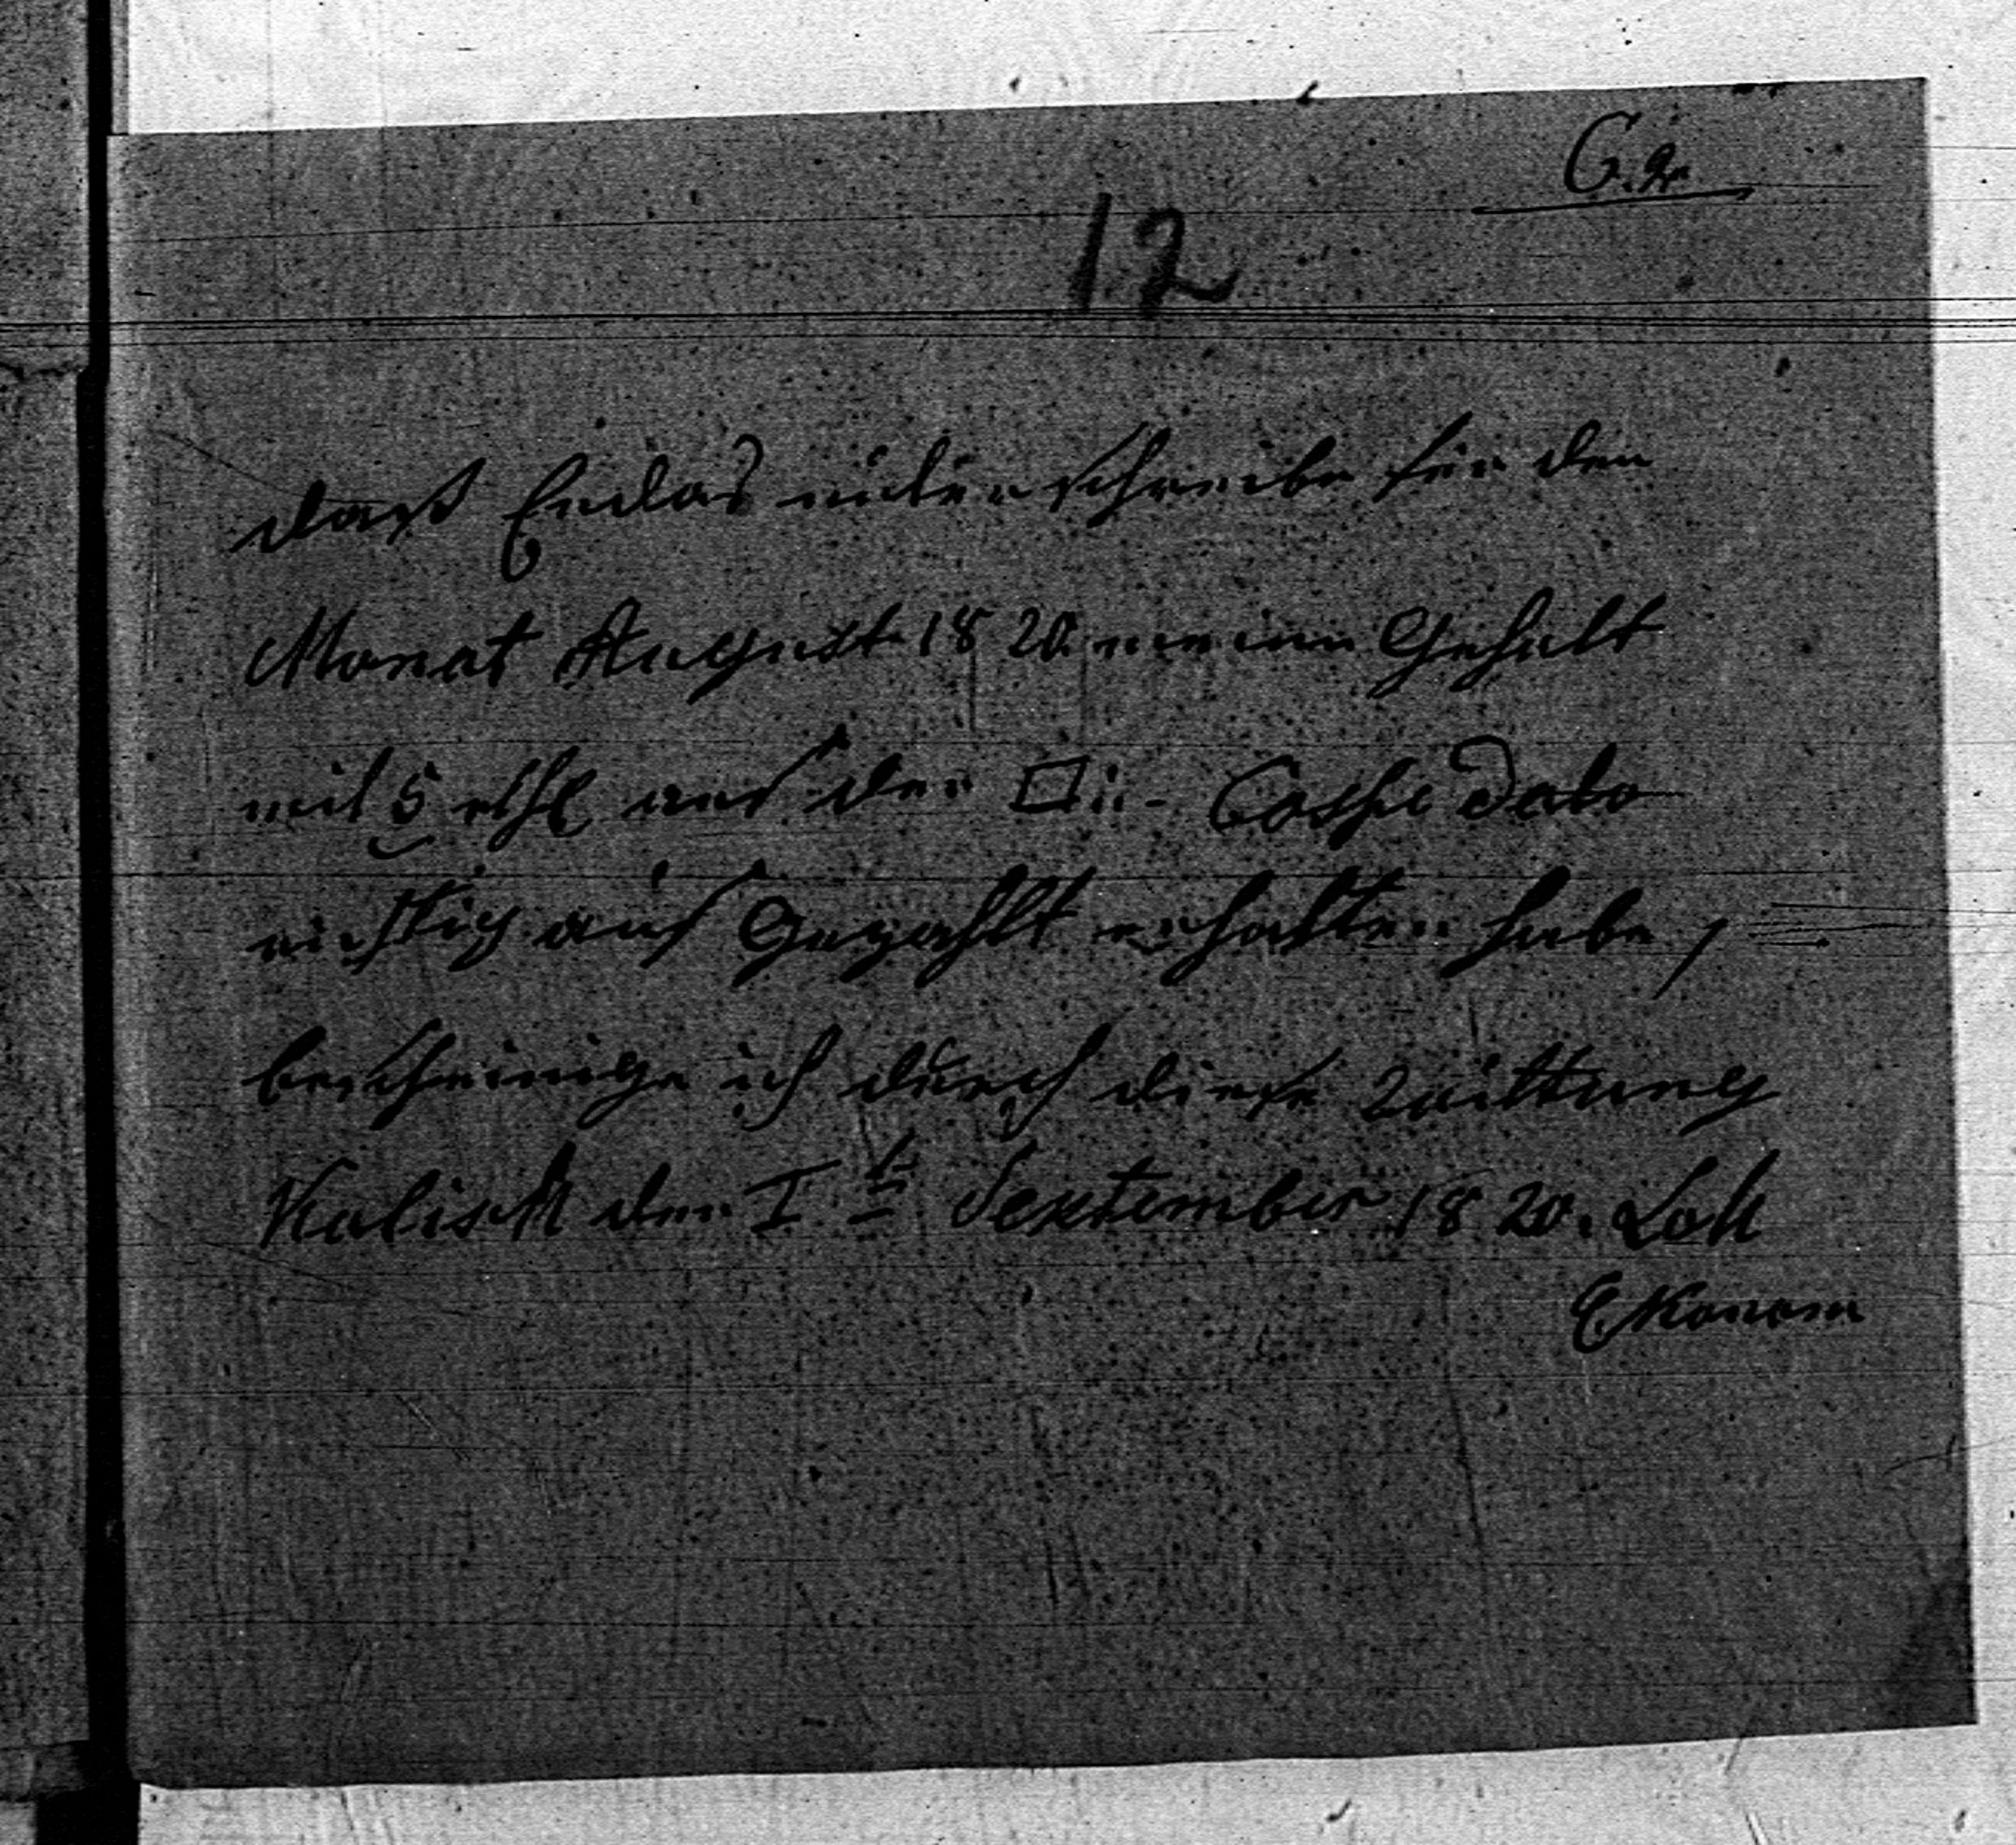 12
daß Endes unterschreibe für den
Monat August 1820 meinen Gehalt
mit 5 rthl aus der □ Casse dato
richtig aus Gezahlt erhalten habe,
bescheinige ich durch diese Quittung
Kalisch den I t September 1820. Loll
Ekonom